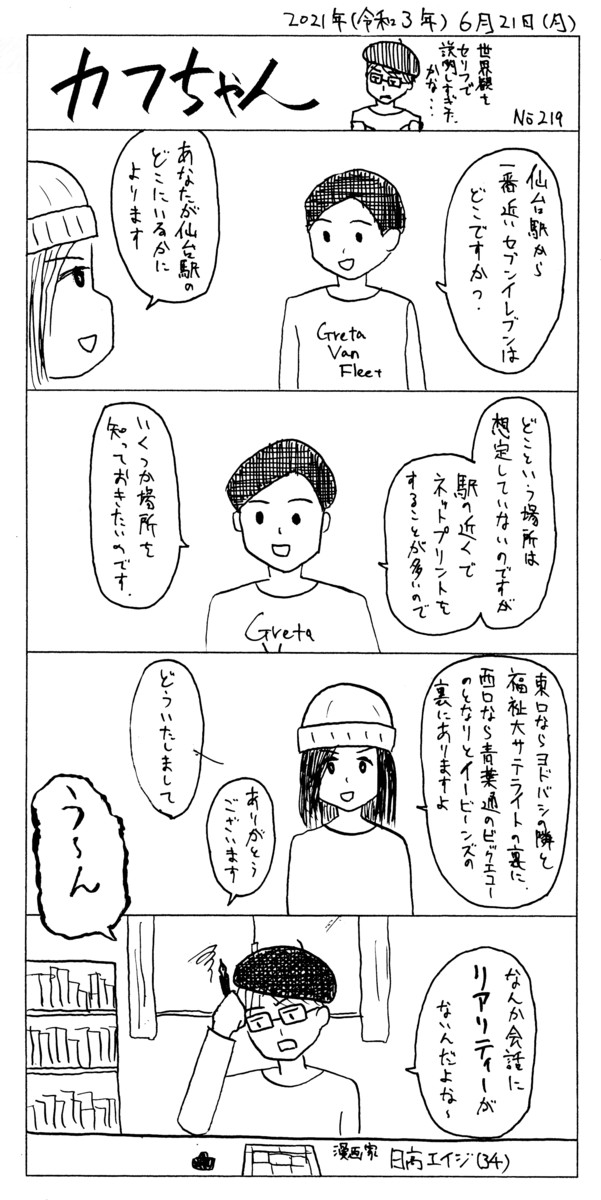 2021年(令和3年) 6月21日(月)
カフちゃん
世界観を
セリフで
説明しすぎた
かな…
No 219
仙台駅から
一番近いセブンイレブンは
どこですかっ.
あなたが仙台駅の
どこにいるかに
よります
Greta
Van
Fleet
どこという場所は
想定していないのですが
駅の近くで
ネットプリントを
することが多いので
いくつか場所を
知っておきたいのです.
Greta
東口ならヨドバシの隣と
福祉大サテライトの裏に.
西口なら青葉通のビッグエコー
のとなりとイービーンズの
裏にありますよ
ありがとう
ございます
どういたしまして
う〜ん
なんか会話に
リアリティーが
ないんだよな〜
漫画家 日高エイジ(34)